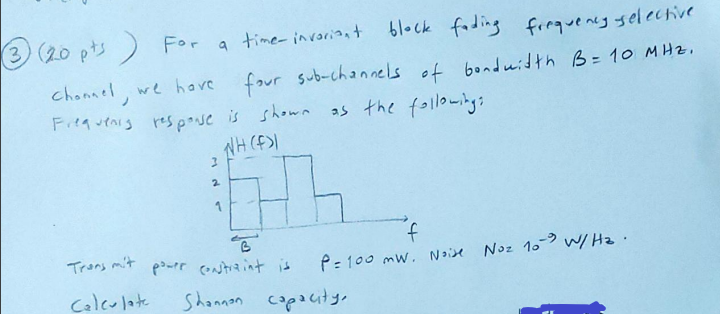 ③ (20 pts) For a time-invariant block fading frequency selective
channel, we have four sub-channels of bandwidth B = 10 MHz.
Frequency response is shown as the following:
|H(f)|
3
2
1
f
B
Transmit power constraint is P = 100 mW. Noise N0 = 10^-9 W/Hz.
Calculate Shannon capacity.